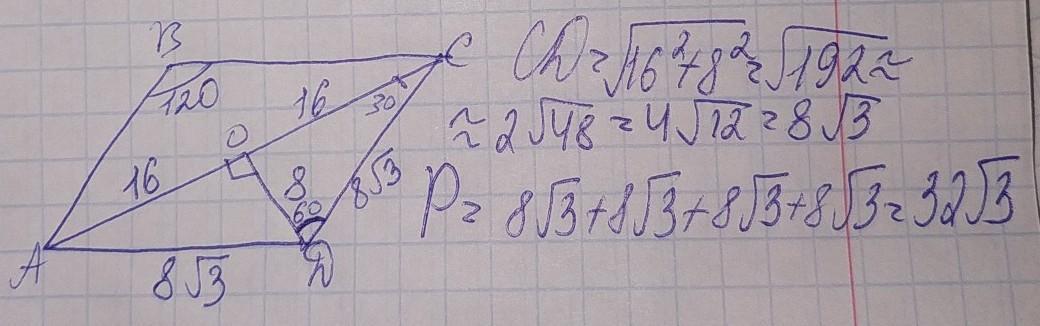 B
C
120
16
30
O
16
8
60
8√3
A
8√3
D
CD=√16²+8²=√192≈
≈2√48=4√12=8√3
P= 8√3+8√3+8√3+8√3=32√3